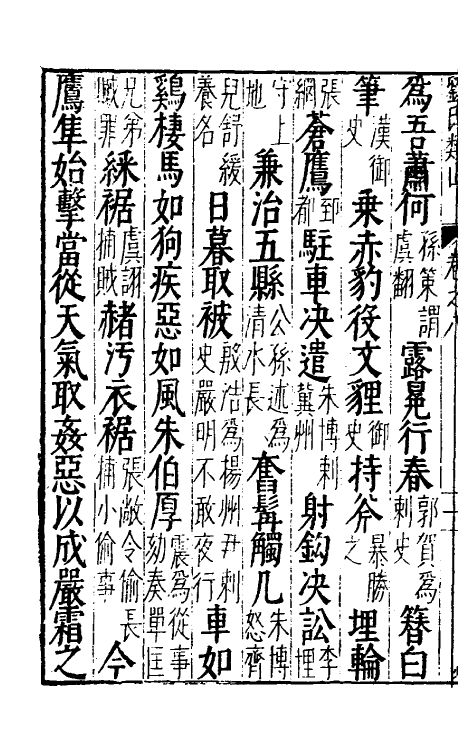 劉氏類山
卷之八
為吾蕭何孫策謂虞翻露冕行春郭賀為刺史簪白
筆漢御史乘赤豹從文貍御史持斧暴勝之埋輪
張綱蒼鷹郅都駐車决遣朱博刺冀州射鈎决訟李埋
守上地兼治五縣公孫述為清水長奮髯觸几朱博怒齊
兒舒緩養名日暮取被殷浩為楊州尹刺史嚴明不敢夜行車如
鷄棲馬如狗疾惡如風朱伯厚震為從事劾奏單匡
兄弟贓罪綵裾虞詡捕賊赭汚衣裾張敞令偷長捕小偷事今
鷹隼始擊當從天氣取姦惡以成嚴霜之